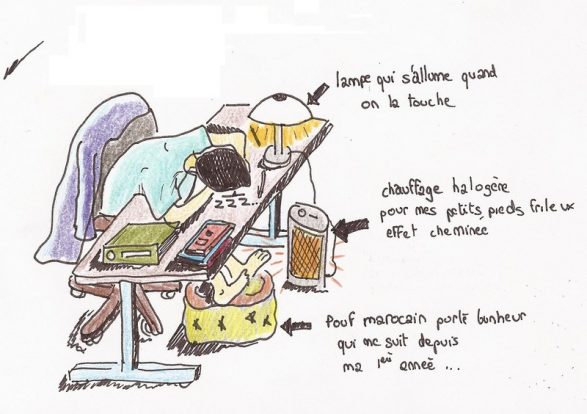 lampe qui s'allume quand
on la touche
zzz...
chauffage halogère
pour mes petits pieds frileux
effet cheminée
Pouf marocain porte bonheur
qui me suit depuis
ma 1ère année ...